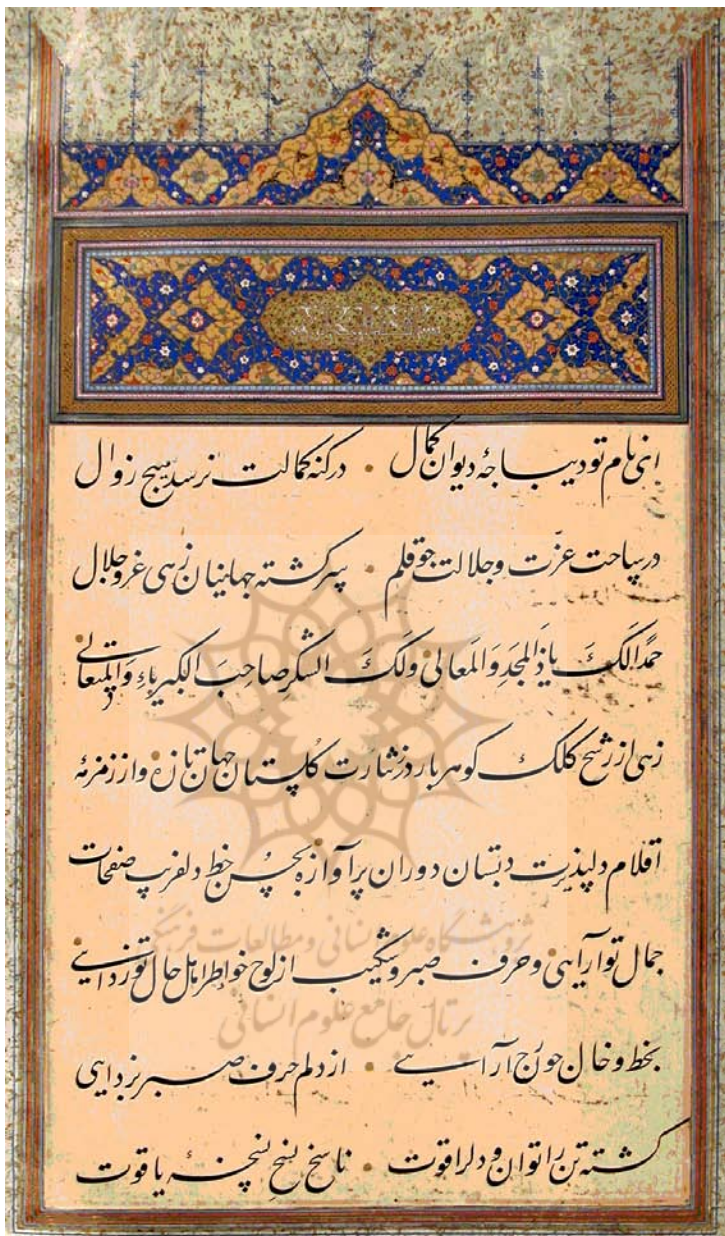 بسم الله الرحمن الرحیم
ای نام تو دیباجهٔ دیوان کمال • در کنه کمالت نرسد هیچ زوال
در ساحت عزّت و جلالت چو قلم • سرگشته جهانیان زهی عز و جلال
حمدًا لَکَ یا ذَالمجدِ وَالمَعالی ولَکَ الشکر صاحبَ الکبریاءِ وَالمتعالی
زهی از رشح کلک گوهربار در نثارت گلستان جهان تازه و از زمزمهٔ
اقلام دلپذیرت دبستان دوران پرآوازه بحسن خط دلفریب صفحات
جمال تو آرایی و حرف صبر و شکیب از لوح خواطر اهل حال تو زدایی
بخط و خال چو رخ آرایی • از دلم حرف صبر بزدایی
گشته تن را توان و دل را قوت • ناسخ نسخ نسخهٔ یاقوت
پژوهشگاه علوم انسانی و مطالعات فرهنگی
پرتال جامع علوم انسانی